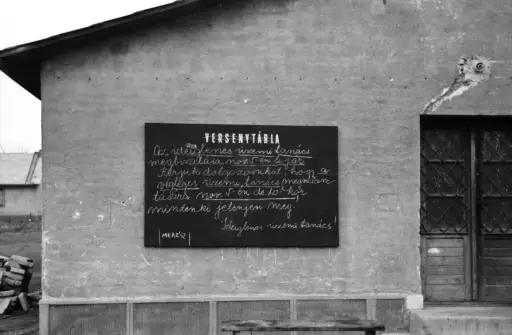 VERSENYTÁBLA
Az ideiglenes üzemi tanács
megbizatása nov. 5-én lejár
Kérjük dolgozóinkat, hogy a
végleges üzemi tanács megválasz-
tására nov. 5-én de. 10h-kor
mindenki jelenjen meg.
Ideiglenes üzemi tanács!